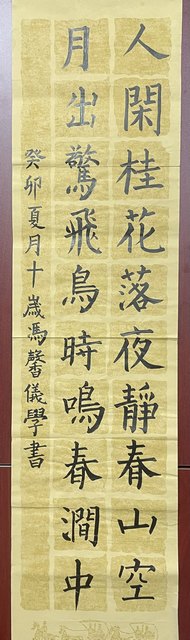 人閑桂花落夜靜春山空
月出驚飛鳥時鳴春澗中
癸卯夏月十歲馮馨儀學書